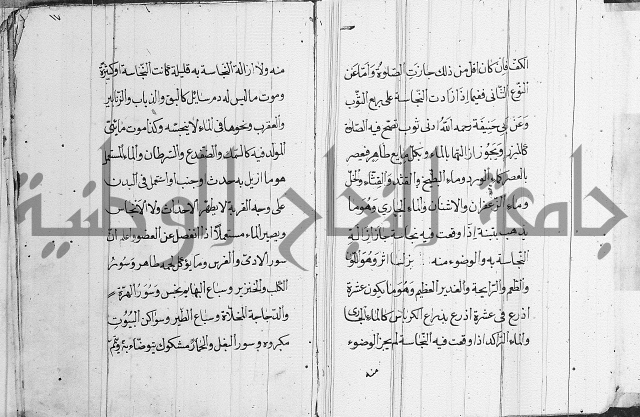 الكف فان كان اقل من ذلك جازت الصلوة واما عن
النوع الثانى فيما اذا زادت النجاسة على ربع الثوب
وعن ابى حنيفة رحمه الله ادنى ثوب تصح فيه الصلوة
كالميزر ويجوز ازالتها بالماء وبكل مايع طاهر
بالعصر كماء الورد وماء البطيخ والقثاء والخل
وماء الزعفران والاشنان والماء الجارى وهو ما
يذهب بتبنة اذا وقعت فيه نجاسة جاز ازالة
النجاسة به والوضوء منه اثر وهو اللون
والطعم والرايحة والغدير العظيم وهو ما يكون عشرة
اذرع فى عشرة اذرع بذراع الكرباس كالماء الجارى
والماء الراكد اذا وقعت فيه النجاسة لم يجز الوضوء
منه
منه ولا ازالة النجاسة به قليلة كانت النجاسة او كثيرة
وموت ما ليس له دم سايل كالبق والذباب والزنابير
والعقرب ونحوها فى الماء لا ينجسه وكذا موت ما
المولد فيه كالسمك والضفدع والسرطان والماء المستعمل
هو ما ازيل به حدث وجنب او استعمل فى البدن
على وجه القربة لا يطهر الاحداث ولا الانجاس
ويصير الماء مستعملا اذا انفصل عن العضو
سور الادمى والفرس وما يؤكل لحمه طاهر وسور
الكلب والخنزير وسباع البهايم نجس وسور الهرة
والدجاجة المخلاة وسباع الطير وسواكن البيوت
مكروه وسور البغل والحمار مشكوك يتوضاء به
جامعة النجاح الوطنية